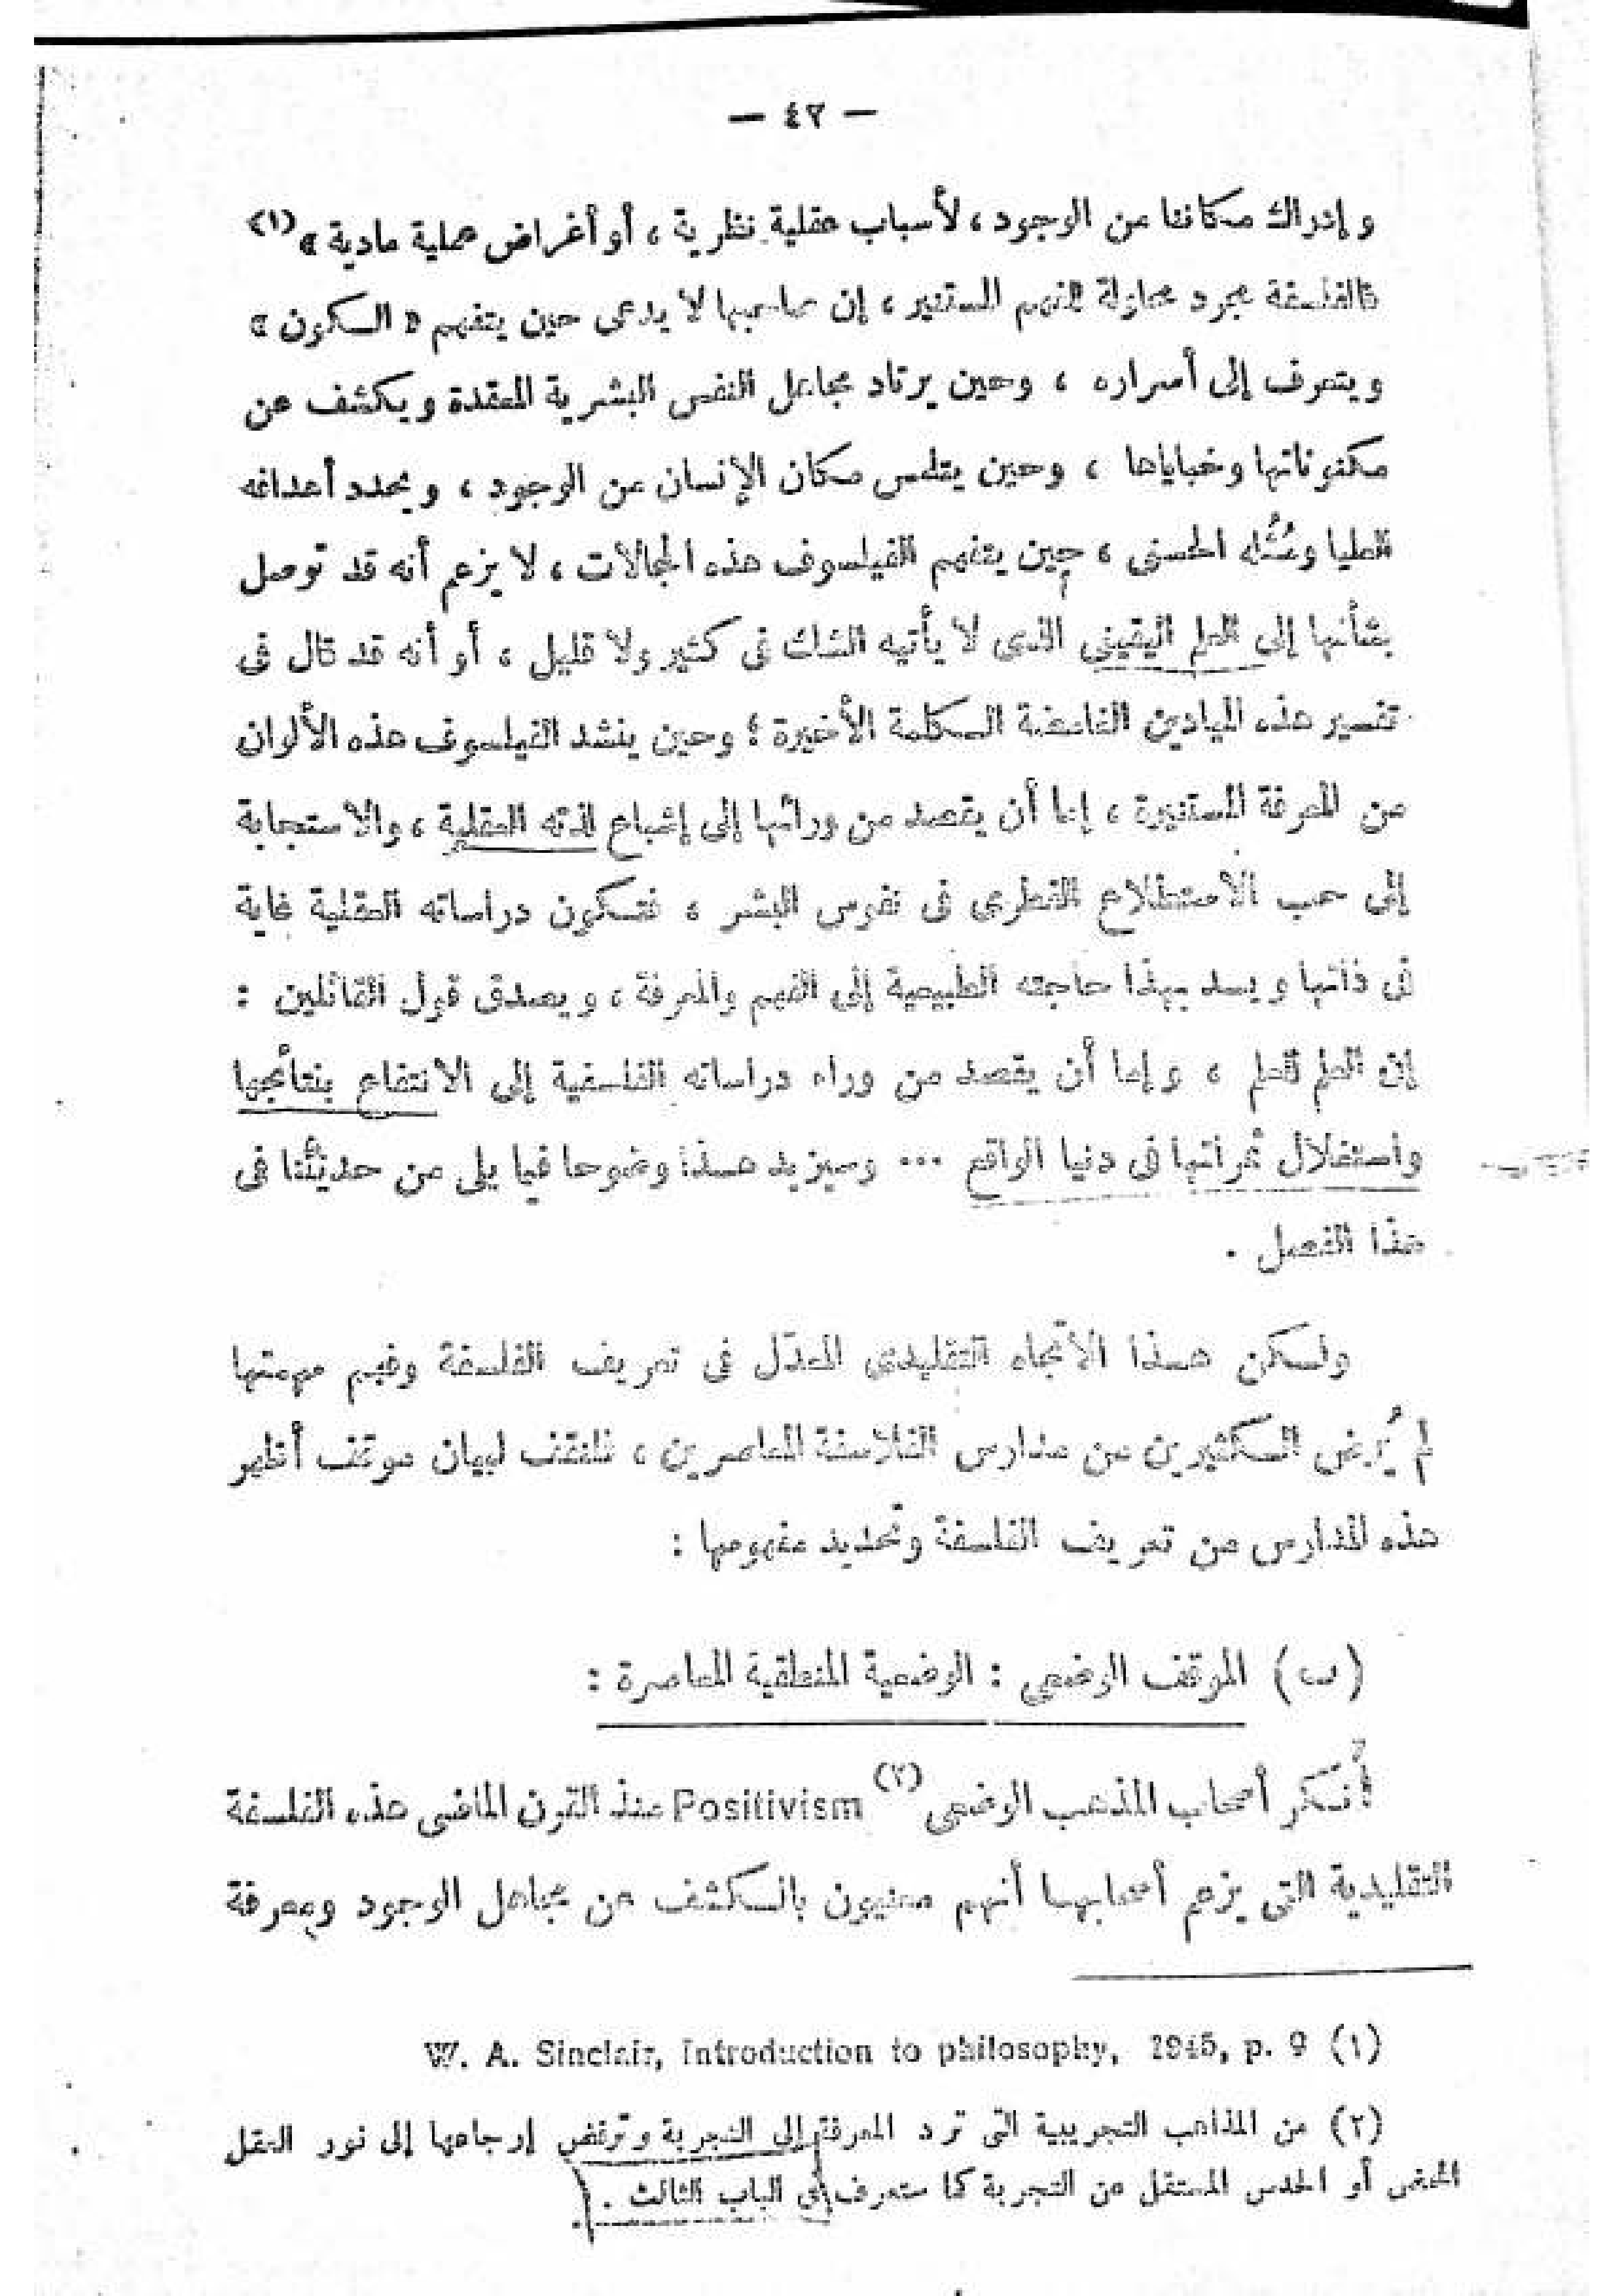 — ٤٢ —
وإدراك مكاننا من الوجود ، لأسباب عقلية نظرية ، أو أغراض عملية مادية » (١)
فالفلسفة مجرد محاولة للفهم المستنير ، إن صاحبها لا يدعى حين يتفهم « الكون »
ويتعرف إلى أسراره ، وحين يرتاد مجاهل النفس البشرية المعقدة ويكشف عن
مكنوناتها وخباياها ، وحين يتلمس مكان الإنسان من الوجود ، ويحدد أهدافه
العليا ومُثُله الحسنى ، حين يتفهم الفيلسوف هذه المجالات ، لا يزعم أنه قد توصل
بشأنها إلى العلم اليقينى الذى لا يأتيه الشك فى كثير ولا قليل ، أو أنه قد قال فى
تفسير هذه الميادين الغامضة الكلمة الأخيرة ؛ وحين ينشد الفيلسوف هذه الألوان
من المعرفة المستنيرة ، إما أن يقصد من ورائها إلى إشباع لذته العقلية ، والاستجابة
إلى حب الاستطلاع الفطرى فى نفوس البشر ، فتكون دراساته العقلية غاية
فى ذاتها ويسد بهذا حاجته الطبيعية إلى الفهم والمعرفة ، ويصدق قول القائلين :
إن العلم للعلم ، وإما أن يقصد من وراء دراساته الفلسفية إلى الانتفاع بنتائجها
واستغلال ثمراتها فى دنيا الواقع ... وسيزيد هذا وضوحا فيما يلى من حديثنا فى
هذا الفصل .
ولكن هذا الاتجاه التقليدى المعدّل فى تعريف الفلسفة وفهم مهمتها
لم يُرض الكثيرين من مدارس الفلاسفة المعاصرين ، فلنقف لبيان موقف أظهر
هذه المدارس من تعريف الفلسفة وتحديد مفهومها :
(ب) الموقف الوضعى : الوضعية المنطقية المعاصرة :
أنكر أصحاب المذهب الوضعى (٢) Positivism منذ القرن الماضى هذه الفلسفة
التقليدية التى يزعم أصحابها أنهم معنيون بالكشف عن مجاهل الوجود ومعرفة
(١) W. A. Sinclair, Introduction to philosophy, 1945, p. 9
(٢) من المذاهب التجريبية التى ترد المعرفة إلى التجربة وترفض إرجاعها إلى نور العقل
المحض أو الحدس المستقل عن التجربة كما ستعرف فى الباب الثالث .